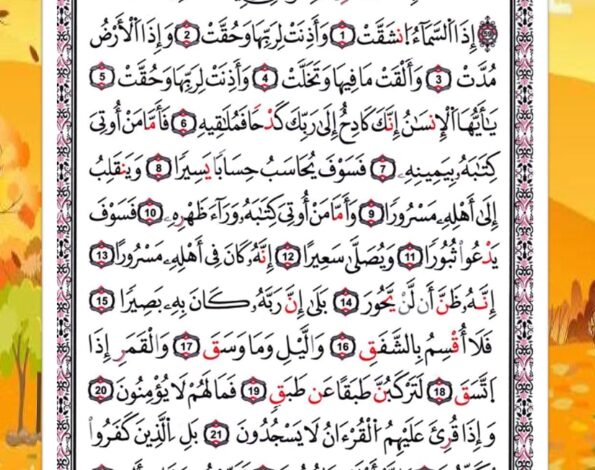 إِذَا اَلسَّمَآءُ اُنشَقَّتْ 1 وَأَذِنَتْ لِرَبِّهَا وَحُقَّتْ 2 وَإِذَا اَلْأَرْضُ
مُدَّتْ 3 وَأَلْقَتْ مَا فِيهَا وَتَخَلَّتْ 4 وَأَذِنَتْ لِرَبِّهَا وَحُقَّتْ 5
يَٰٓأَيُّهَا اَلْإِنسَٰنُ إِنَّكَ كَادِحٌ إِلَىٰ رَبِّكَ كَدْحًا فَمُلَٰقِيهِ 6 فَأَمَّا مَنْ أُوتِىَ
كِتَٰبَهُۥ بِيَمِينِهِۦ 7 فَسَوْفَ يُحَاسَبُ حِسَابًا يَسِيرًا 8 وَيَنقَلِبُ
إِلَىٰٓ أَهْلِهِۦ مَسْرُورًا 9 وَأَمَّا مَنْ أُوتِىَ كِتَٰبَهُۥ وَرَآءَ ظَهْرِهِۦ 10 فَسَوْفَ
يَدْعُوا۟ ثُبُورًا 11 وَيُصَلَّىٰ سَعِيرًا 12 إِنَّهُۥ كَانَ فِىٓ أَهْلِهِۦ مَسْرُورًا 13
إِنَّهُۥ ظَنَّ أَن لَّنْ يَّحُورَ 14 بَلَىٰٓ إِنَّ رَبَّهُۥ كَانَ بِهِۦ بَصِيرًا 15
فَلَآ أُقْسِمُ بِالشَّفَقِ 16 وَالَّيْلِ وَمَا وَسَقَ 17 وَالْقَمَرِ إِذَا
اَتَّسَقَ 18 لَتَرْكَبُنَّ طَبَقًا عَن طَبَقٍ 19 فَمَا لَهُمْ لَا يُؤْمِنُونَ 20
وَإِذَا قُرِئَ عَلَيْهِمُ اُلْقُرْءَانُ لَا يَسْجُدُونَ 21 بَلِ اِلَّذِينَ كَفَرُوا